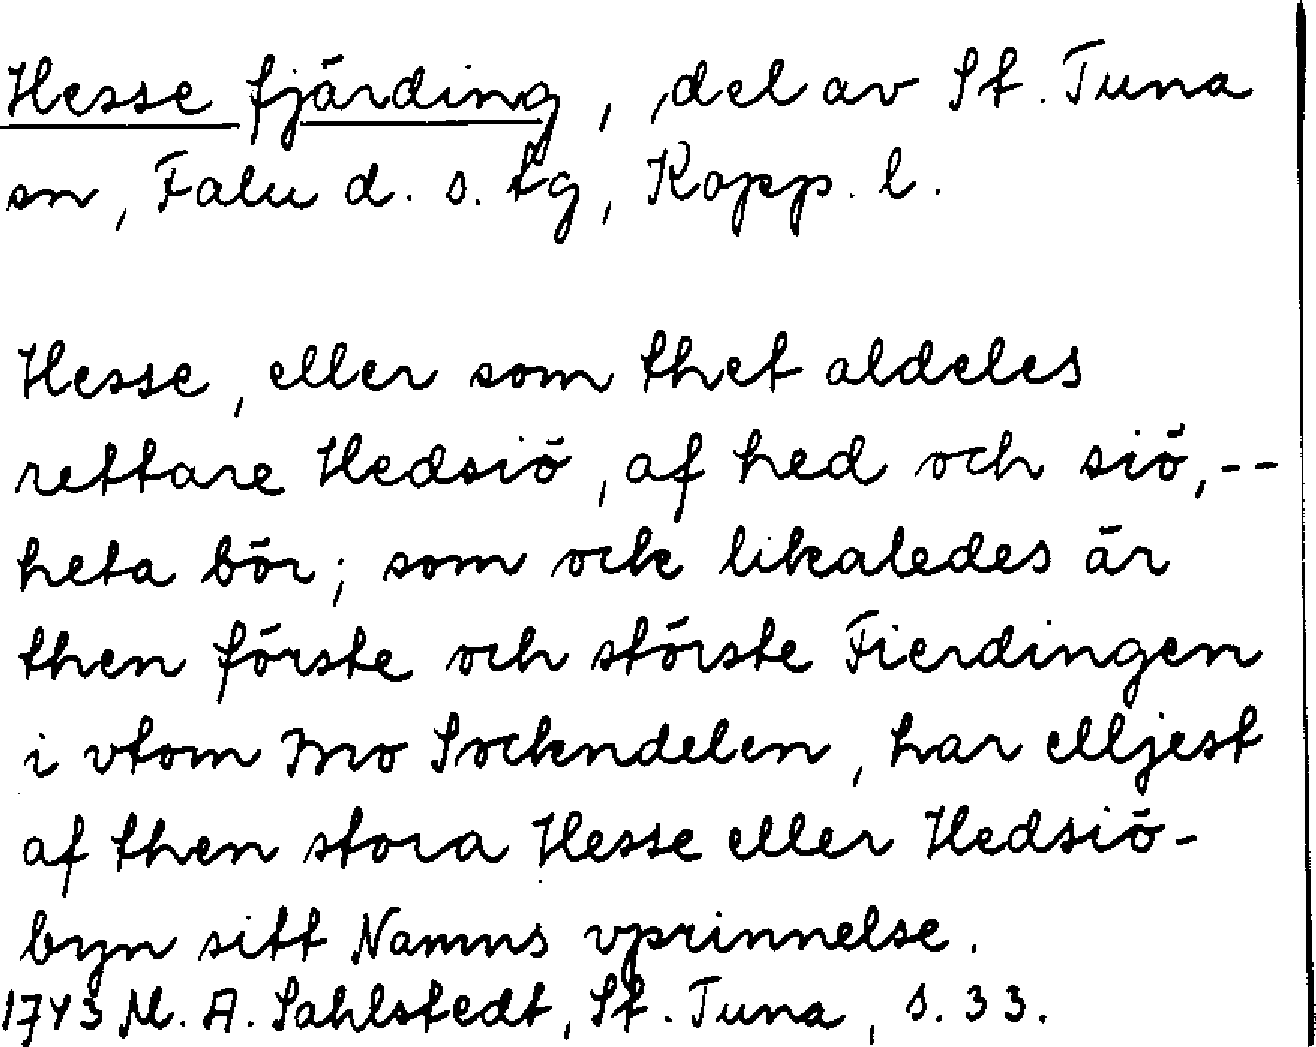 Hesse fjärding, del av St. Tuna
sn, Falu d. s. tg, Kopp. l.
Hesse, eller som thet aldeles
rettare Hedsiö, af hed och siö, --
heta bör; som ock likaledes är
then förste och störste Fierdingen
i vtom Mo Sockndelen, har elljest
af then stora Hesse eller Hedsiö-
byn sitt Namns vprinnelse.
1743 M. A. Sahlstedt, St. Tuna, s. 33.